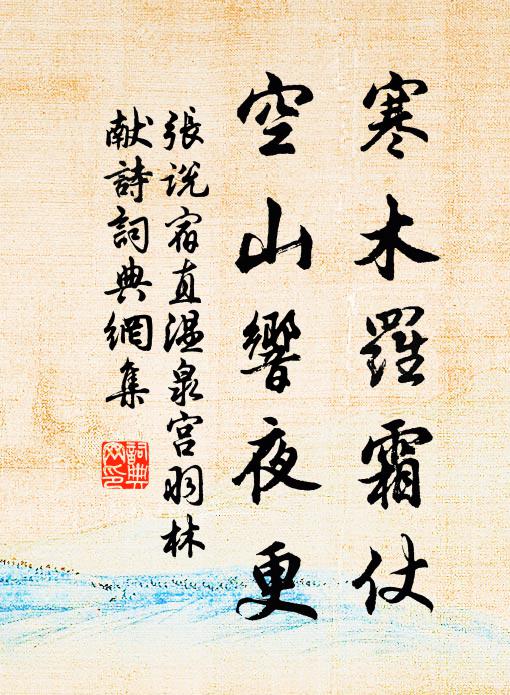 寒木羅霜仗
空山響夜更
張说宿直温泉宫羽林
献詩詞典網集
詞典网印